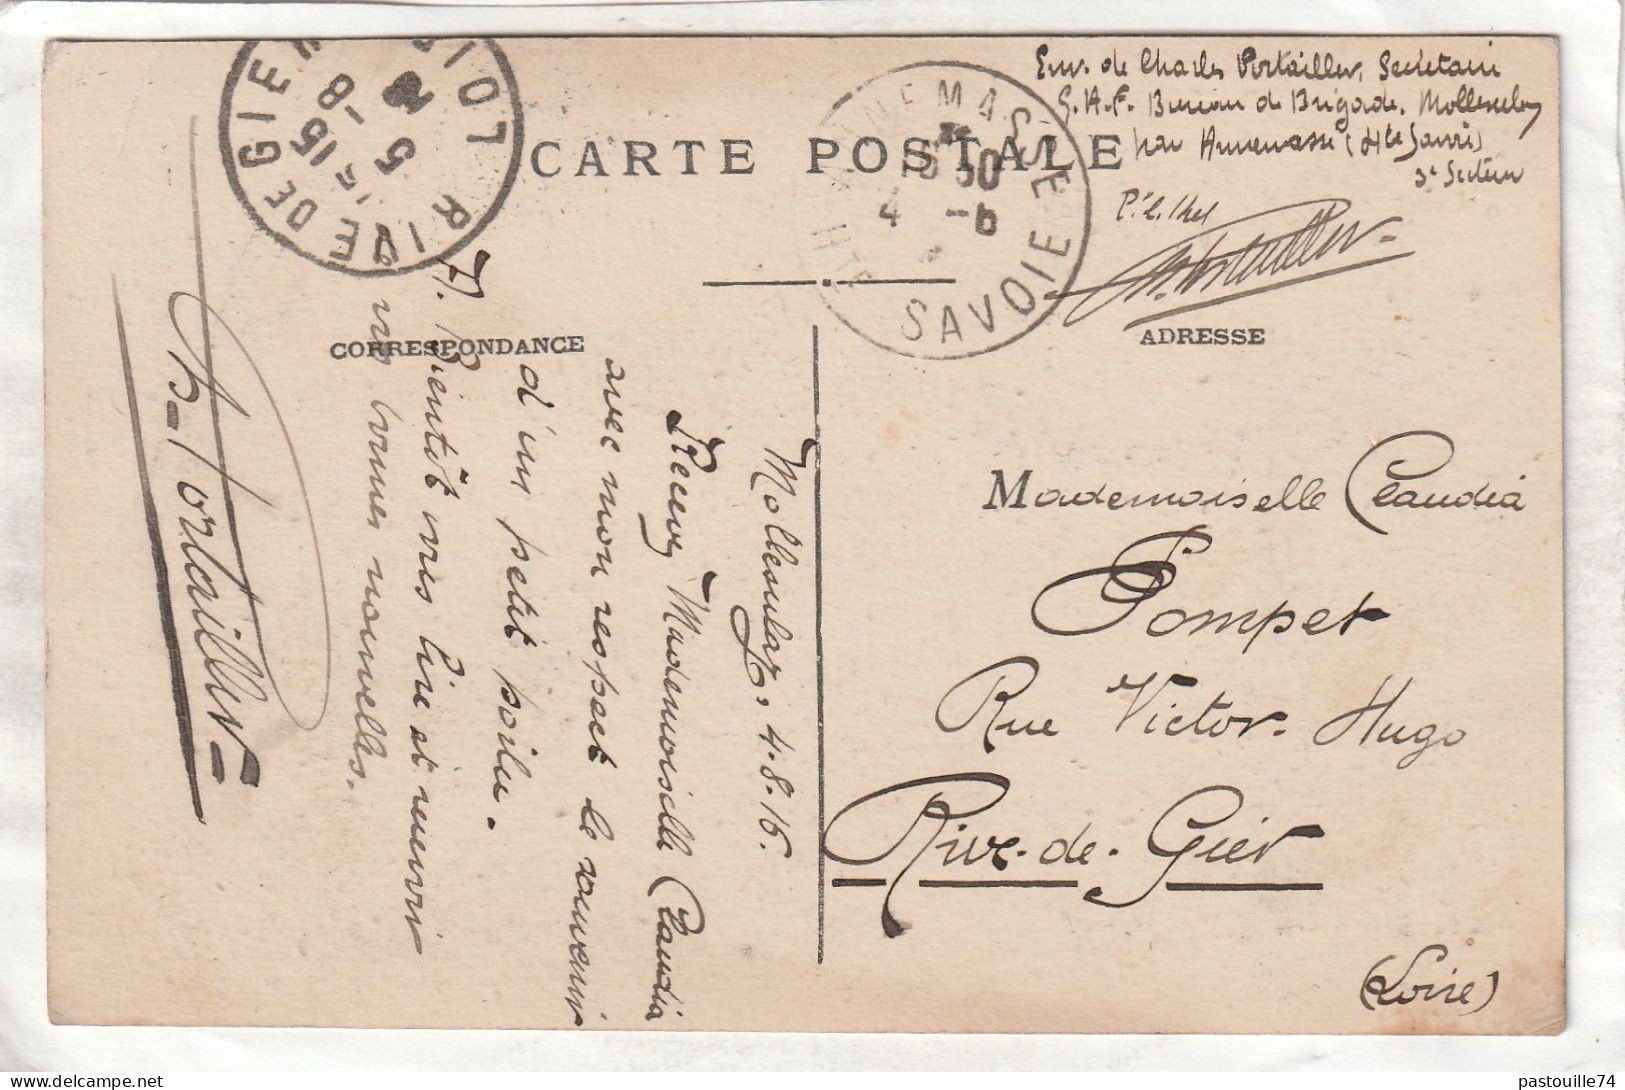 CARTE POSTALE
Env. de Charles Portailler, Secrétaire
G.A.F. Bureau de Brigade. Mollesulaz
par Annemasse (Hte Savoie)
3e Secteur
ANNEMASSE
4 -8
HTE SAVOIE
RIVE DE GIER LOIRE
15
5 -8
CORRESPONDANCE
ADRESSE
Mollesulaz, 4.8.16.
Recevez Mademoiselle Claudia
avec mon respect le souvenir
d'un petit poilu.
A bientôt vous lire et
vos bonnes nouvelles.
Ch. Portailler
Mademoiselle Claudia
Pompet
Rue Victor-Hugo
Rive-de-Gier
(Loire)
pastouille74